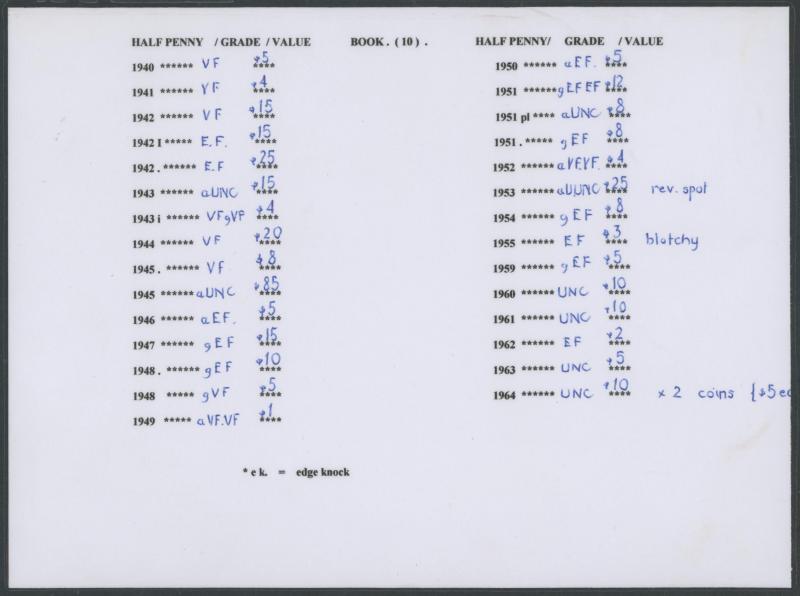 HALF PENNY / GRADE / VALUE BOOK . ( 10 ) .
1940 ****** VF $5 ****
1941 ****** VF $4 ****
1942 ****** VF $15 ****
1942 I ***** E.F. $15 ****
1942 . ****** E.F $25 ****
1943 ****** aUNC $15 ****
1943 i ****** VFgVF $4 ****
1944 ****** VF $20 ****
1945 . ****** VF $8 ****
1945 ****** aUNC $85 ****
1946 ****** aEF. $5 ****
1947 ****** gEF $15 ****
1948 . ****** gEF $10 ****
1948 ***** gVF $5 ****
1949 ***** aVF.VF $1 ****
HALF PENNY/ GRADE / VALUE
1950 ****** aEF. $5 ****
1951 ****** gEFEF $12 ****
1951 pl **** aUNC $8 ****
1951 . ***** gEF $8 ****
1952 ****** aVF.VF. $4 ****
1953 ****** aUUNC $25 **** rev. spot
1954 ****** gEF $8 ****
1955 ****** EF $3 **** blotchy
1959 ****** gEF $5 ****
1960 ****** UNC $10 ****
1961 ****** UNC $10 ****
1962 ****** EF $2 ****
1963 ****** UNC $5 ****
1964 ****** UNC $10 **** x 2 coins {$5 ea
* e k. = edge knock